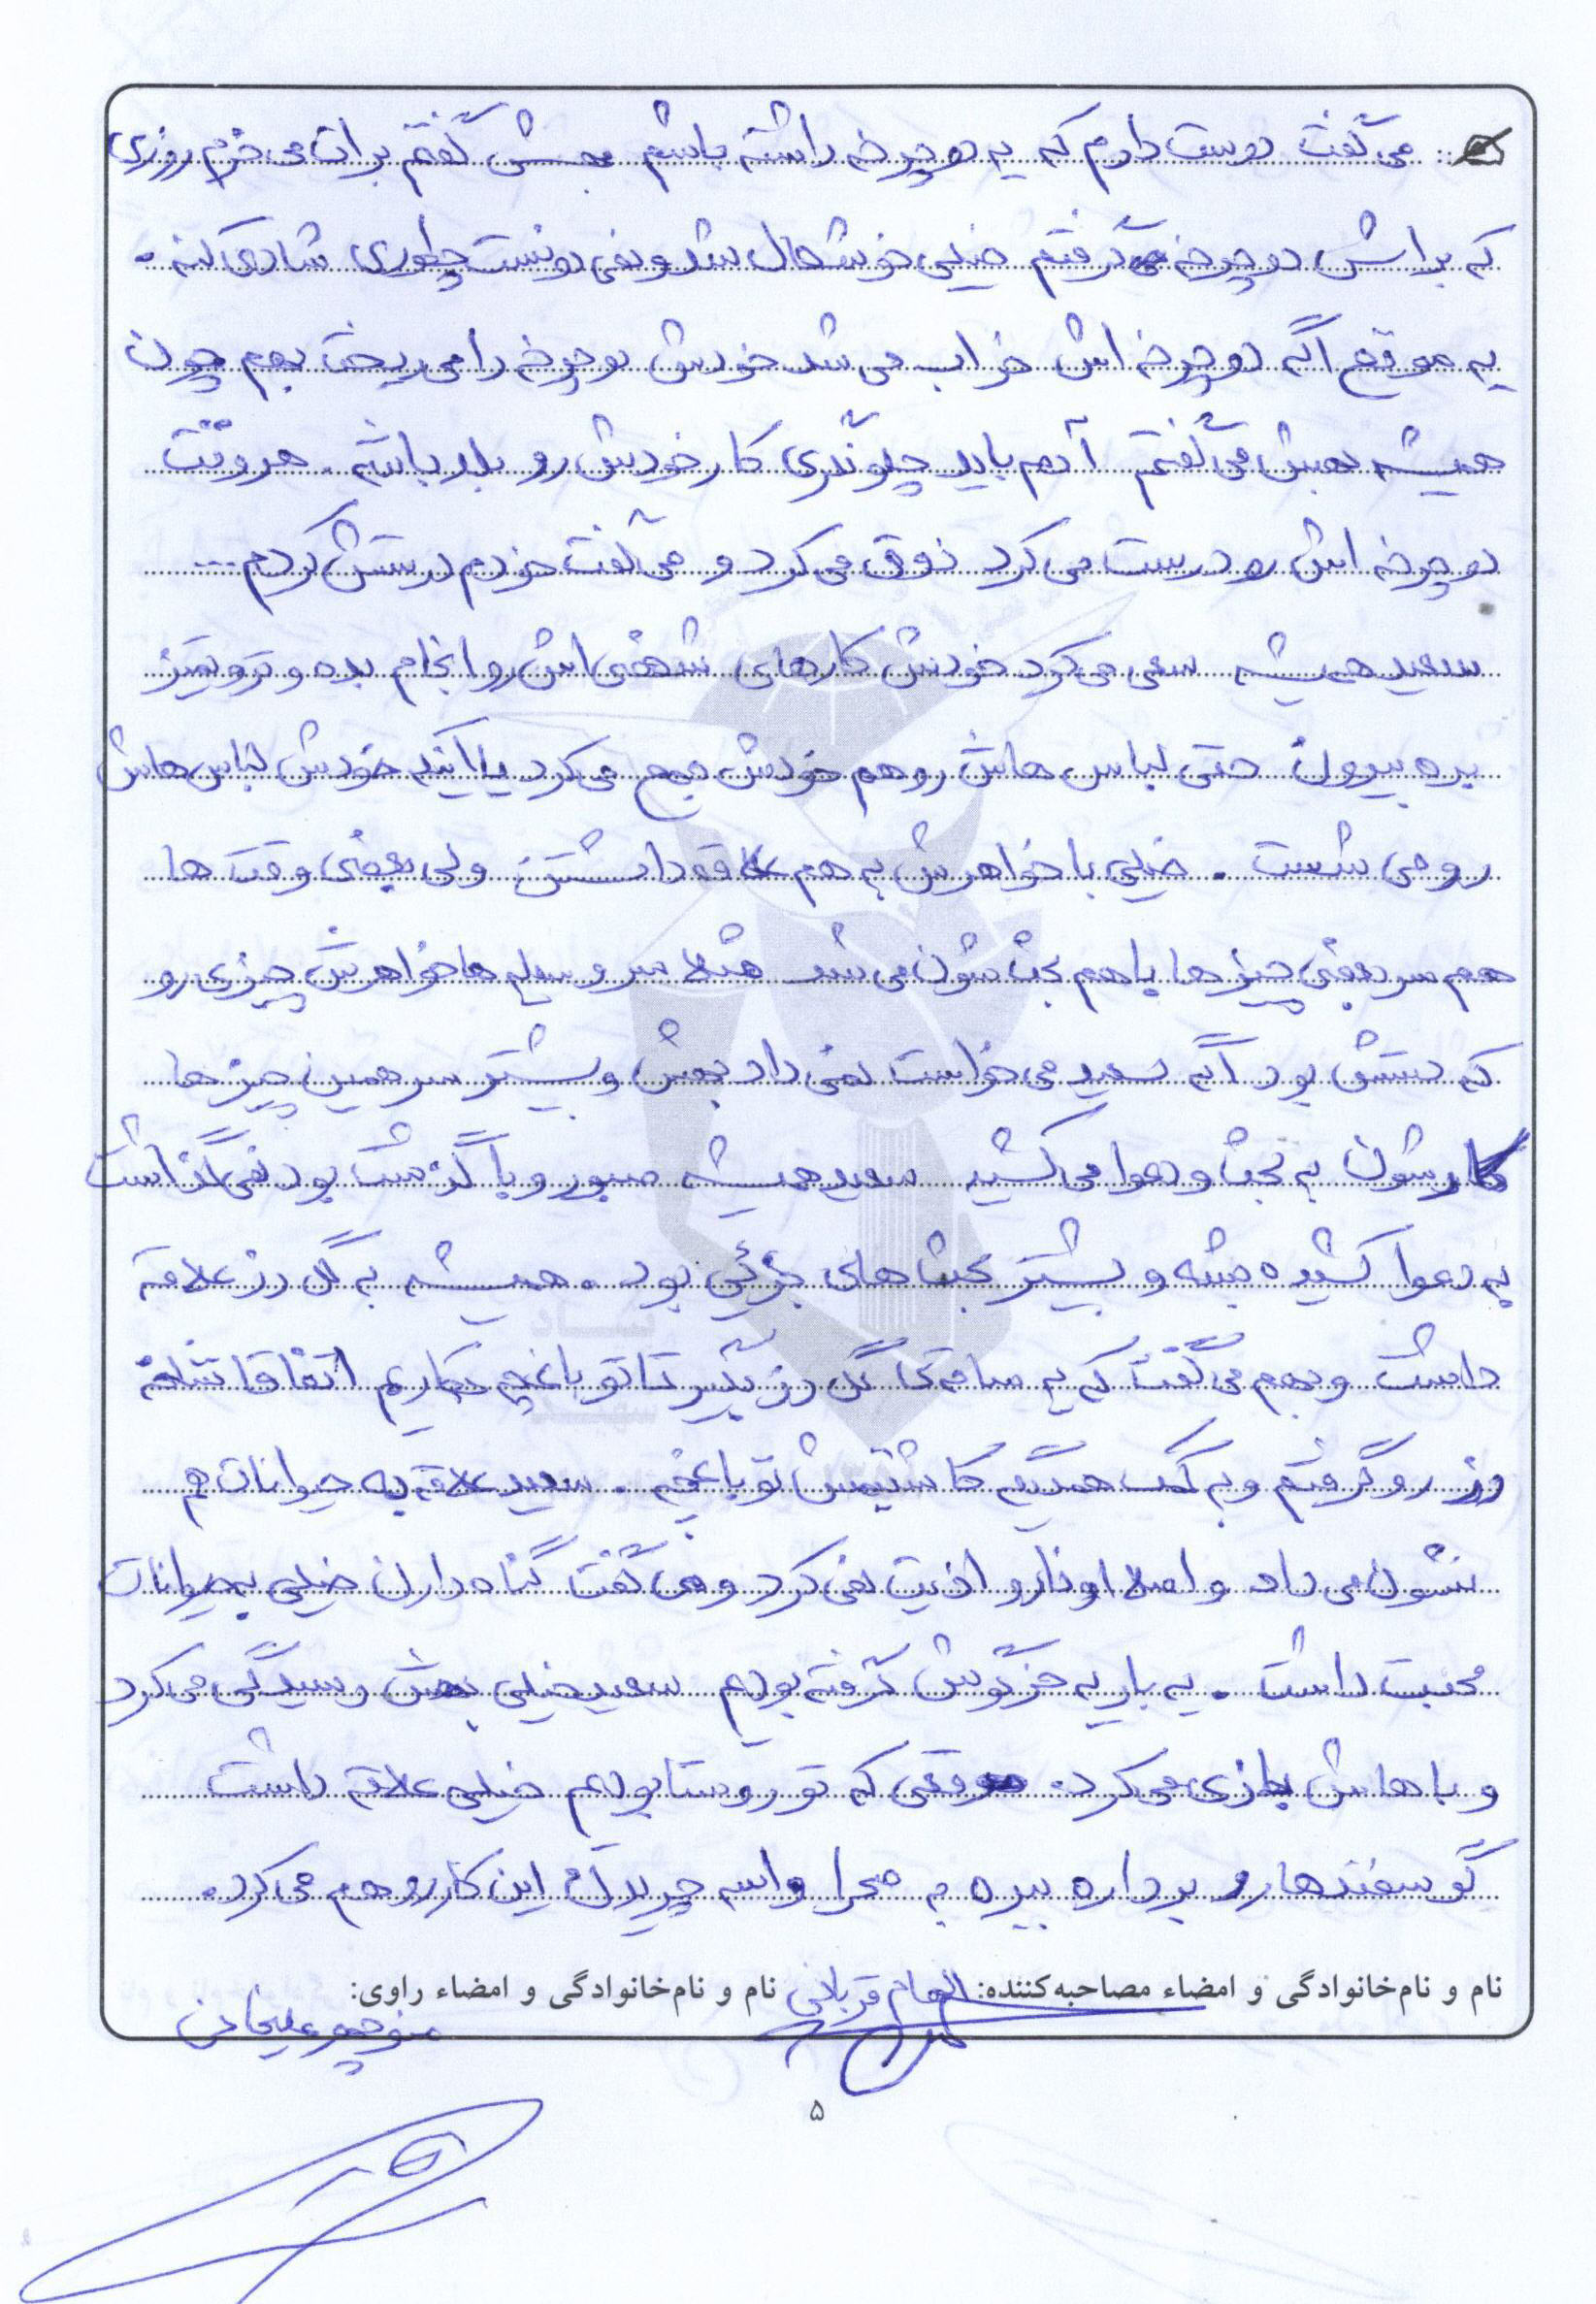 می گفت دوست دارم که یه دوچرخه داشته باشم بهش گفتم برات می خرم روزی
که براش دوچرخه گرفتم خیلی خوشحال شد و نمی دونست چطوری شادی کنه.
یه موقع اگه دوچرخه اش خراب می شد خودش دوچرخه را می ریخت بهم چون
همیشه بهش می گفتم آدم باید جلوتری کار خودش رو بلد باشه. هر وقت
دوچرخه اش رو درست می کرد ذوق می کرد و می گفت خودم درستش کردم...
سعید همیشه سعی می کرد خودش کارهای شخصی اش رو انجام بده و تر و تمیز
بره بیرون حتی لباس هاش رو هم خودش جمع می کرد یا اینکه خودش لباس هاش
رو می شست. خیلی با خواهرش به هم علاقه داشتن ولی بعضی وقت ها
هم سر بعضی چیزها با هم بحث شون می شد مثلا سر وسیله ها خواهرش چیزی رو
که دستش بود اگه سعید می خواست نمی داد بهش و بیشتر سر همین چیزها
کارشون به بحث و دعوا می کشید سعید همیشه صبور و با گذشت بود نمی گذاشت
به دعوا کشیده بشه و بیشتر بحث های جزئی بود. همیشه به گل رز علاقه
داشت و بهم می گفت که یه ساقه گل رز بگیر تا تو باغچه بکاریم اتفاقا شاخه
رز رو گرفتم و به کمک همدیگه کاشتیمش تو باغچه. سعید علاقه به حیوانات هم
نشون می داد و اصلا اونارو اذیت نمی کرد و می گفت گناه دارن خیلی به حیوانات
محبت داشت. یه بار یه خرگوش گرفته بودیم سعید خیلی بهش رسیدگی می کرد
و باهاش بازی می کرد. موقعی که تو روستا بودیم خیلی علاقه داشت
گوسفندها رو برداره ببره به صحرا واسه چریدن این کار رو هم می کرد.
نام و نام‌خانوادگی و امضاء مصاحبه‌کننده: الهام قربانی نام و نام‌خانوادگی و امضاء راوی:
منوچهر علیخانی
۵